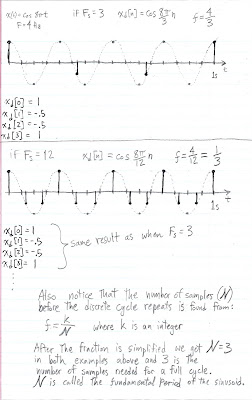 x(t) = cos 8πt if Fs = 3 x↓[n] = cos 8π/3 n f = 4/3
F = 4 hz
1s t
x↓[0] = 1
x↓[1] = -.5
x↓[2] = -.5
x↓[3] = 1
if Fs = 12 x↓[n] = cos 8π/12 n f = 4/12 = 1/3
1s t
x↓[0] = 1
x↓[1] = -.5
x↓[2] = -.5
x↓[3] = 1
same result as when Fs = 3
Also notice that the number of samples (N)
before the discrete cycle repeats is found from:
f = k/N where k is an integer
After the fraction is simplified we get N = 3
in both examples above and 3 is the
number of samples needed for a full cycle.
N is called the fundamental period of the sinusoid.